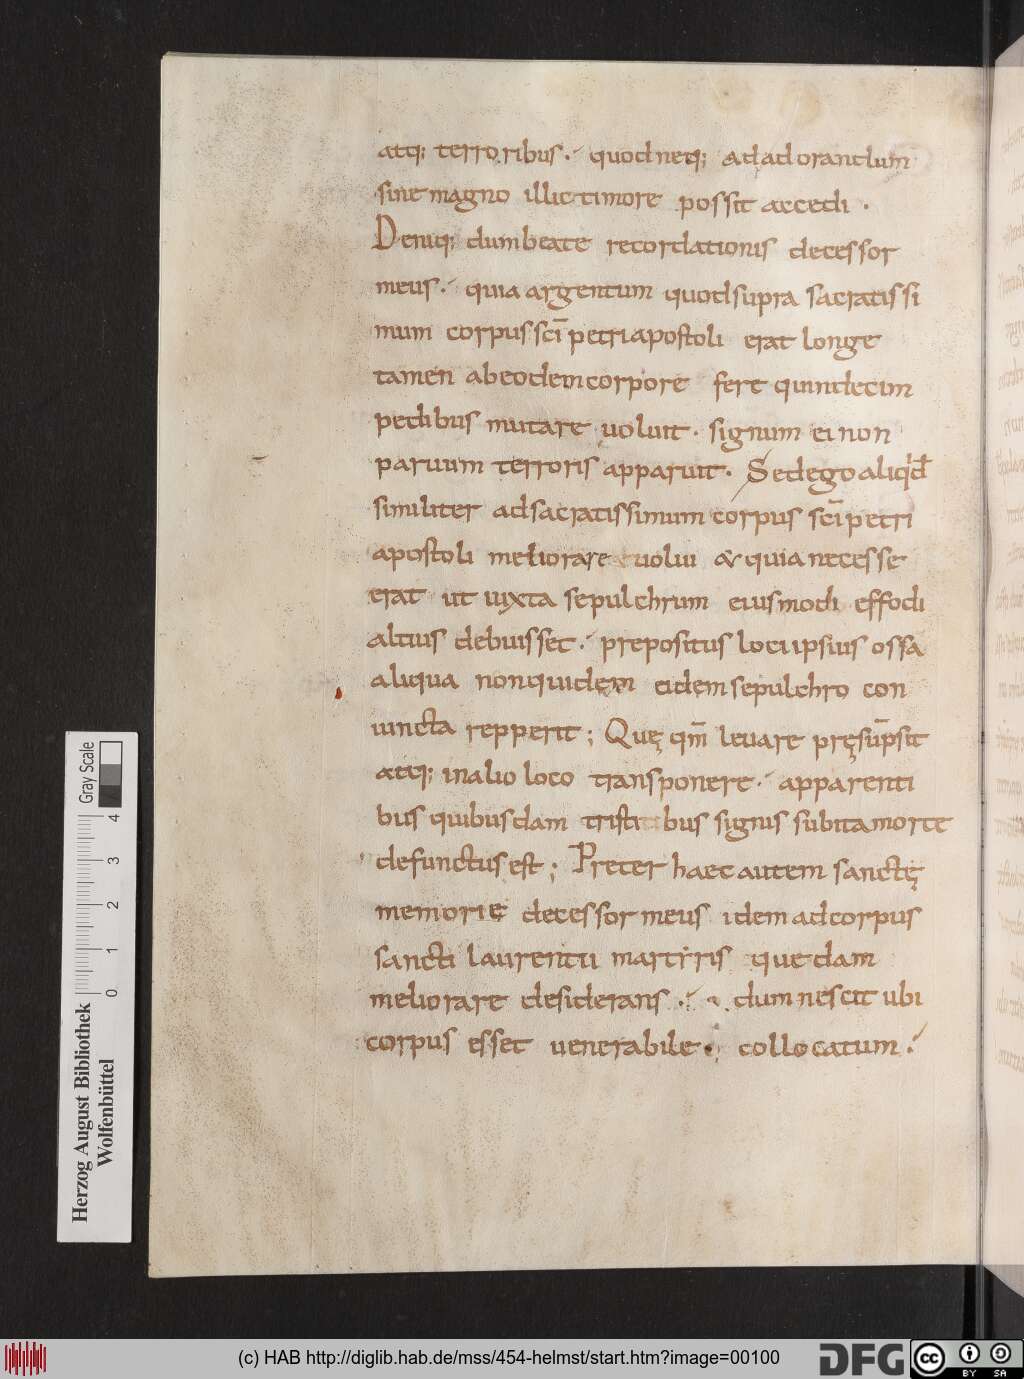 atq; terroribus. quod neq; ad adorandum
sine magno illic timore possit accedi .
Deniq; dum beate recordationis decessor
meus. quia argentum quod supra sacratissi
mum corpus sc̄i petri apostoli erat longe
tamen ab eodem corpore fere quindecim
pedibus mutare uoluit. signum ei non
paruum terroris apparuit. Sed ego aliqd
similiter ad sacratissimum corpus sc̄i petri
apostoli meliorare uolui & quia necesse
erat ut iuxta sepulchrum eiusmodi effodi
altius debuisset. prepositus loci ipsius ossa
aliqua non quidem eidem sepulchro con
iuncta repperit; Quę qm̄ leuare pręsūpsit
atq; in alio loco transponere. apparenti
bus quibusdam tristibus signis subita morte
defunctus est; Preter haec autem sanctę
memorię decessor meus idem ad corpus
sancti laurentii martyris quedam
meliorare desiderans . dum nescit ubi
corpus esset uenerabile. collocatum.
Gray Scale
0 1 2 3 4
Herzog August Bibliothek
Wolfenbüttel
(c) HAB http://diglib.hab.de/mss/454-helmst/start.htm?image=00100
DFG
cc BY SA